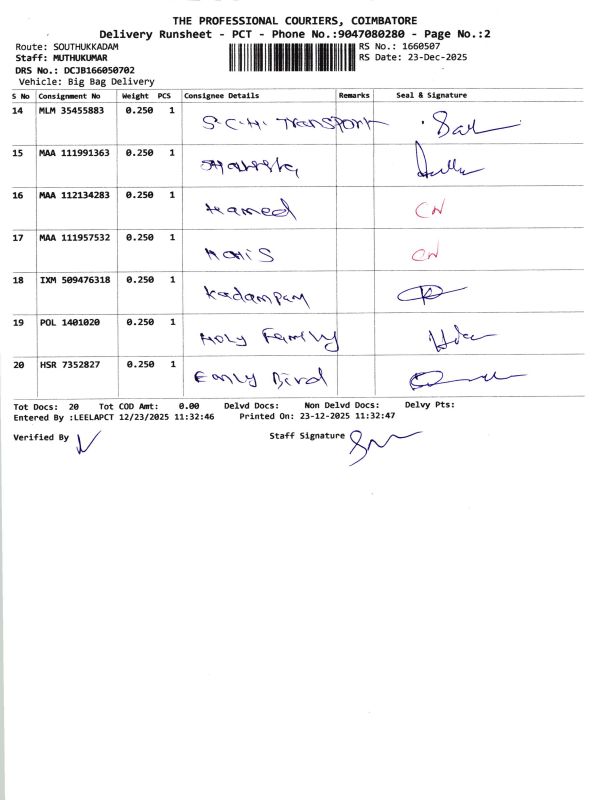 THE PROFESSIONAL COURIERS, COIMBATORE
Delivery Runsheet - PCT - Phone No.:9047080280 - Page No.:2
Route: SOUTHUKKADAM RS No.: 1660507
Staff: MUTHUKUMAR RS Date: 23-Dec-2025
DRS No.: DCJB166050702
Vehicle: Big Bag Delivery
S No Consignment No Weight PCS Consignee Details Remarks Seal & Signature
14 MLM 35455883 0.250 1 S.C.H. Transport
15 MAA 111991363 0.250 1
16 MAA 112134283 0.250 1 Hamed CN
17 MAA 111957532 0.250 1 CN
18 IXM 509476318 0.250 1 Kadampam
19 POL 1401020 0.250 1 Holy Family
20 HSR 7352827 0.250 1 Early Bird
Tot Docs: 20 Tot COD Amt: 0.00 Delvd Docs: Non Delvd Docs: Delvy Pts:
Entered By :LEELAPCT 12/23/2025 11:32:46 Printed On: 23-12-2025 11:32:47
Verified By Staff Signature